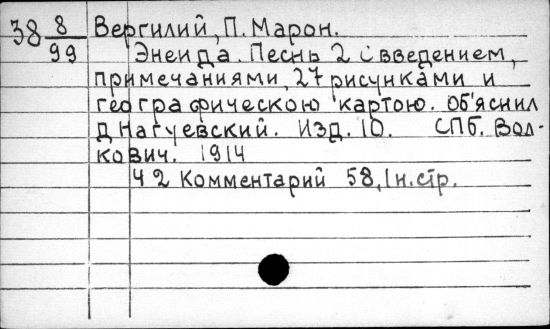 38 8/99 Вергилий, П. Марон.
Энеида. Песнь 2 с введением,
примечаниями, 27 рисунками и
географическою картою. Об'яснил
Д Нагуевский. Изд. 10. СПб. Вол-
кович. 1914
Ч 2 Комментарий 58, 1 н. стр.